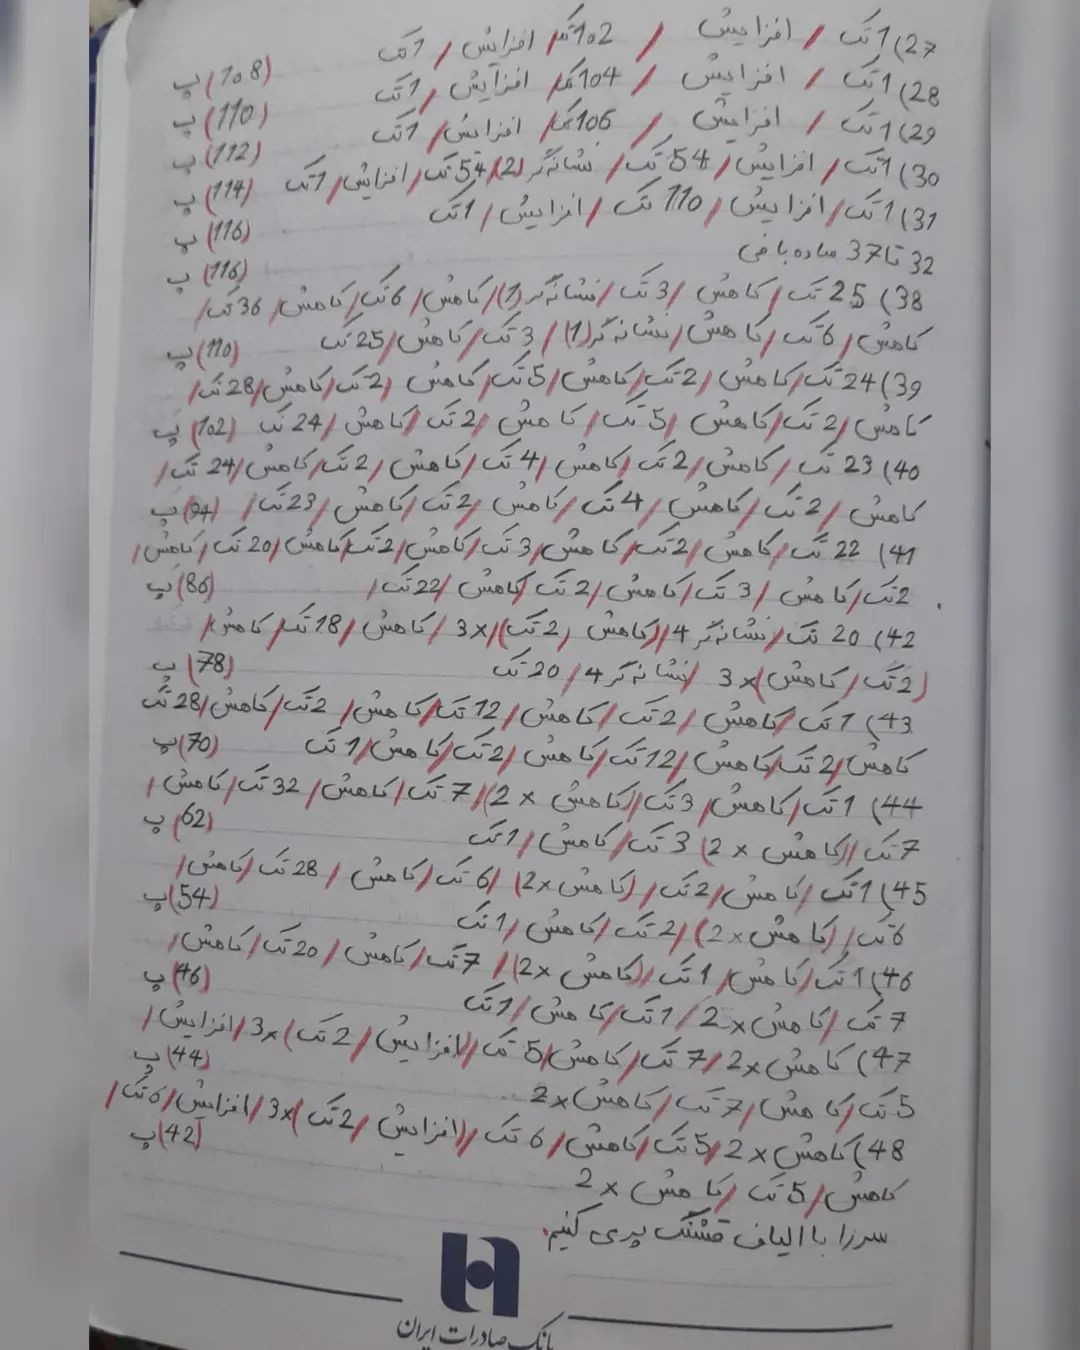 27) 1 تک / افزایش / 102 تک / افزایش / 1 تک (108) پ
28) 1 تک / افزایش / 104 تک / افزایش / 1 تک (110) پ
29) 1 تک / افزایش / 106 تک / افزایش / 1 تک (112) پ
30) 1 تک / افزایش / 54 تک / نشانه گر (2) / 54 تک / افزایش / 1 تک (114) پ
31) 1 تک / افزایش / 110 تک / افزایش / 1 تک (116) پ
32 تا 37 ساده بافی (116) پ
38) 25 تک / کاهش / 3 تک / نشانه گر (1) / کاهش / 6 تک / کاهش / 36 تک /
کاهش / 6 تک / کاهش / نشانه گر (1) / 3 تک / کاهش / 25 تک (110) پ
39) 24 تک / کاهش / 2 تک / کاهش / 5 تک / کاهش / 2 تک / کاهش / 28 تک /
کاهش / 2 تک / کاهش / 5 تک / کاهش / 2 تک / کاهش / 24 تک (102) پ
40) 23 تک / کاهش / 2 تک / کاهش / 4 تک / کاهش / 2 تک / کاهش / 24 تک /
کاهش / 2 تک / کاهش / 4 تک / کاهش / 2 تک / کاهش / 23 تک / (94) پ
41) 22 تک / کاهش / 2 تک / کاهش / 3 تک / کاهش / 2 تک / کاهش / 20 تک / کاهش /
2 تک / کاهش / 3 تک / کاهش / 2 تک / کاهش / 22 تک / (86) پ
42) 20 تک / نشانه گر 4 / (کاهش / 2 تک) / 3x / کاهش / 18 تک / کاهش /
(2 تک / کاهش) x 3 / نشانه گر 4 / 20 تک (78) پ
43) 1 تک / کاهش / 2 تک / کاهش / 12 تک / کاهش / 2 تک / کاهش / 28 تک
کاهش / 2 تک / کاهش / 12 تک / کاهش / 2 تک / کاهش / 1 تک (70) پ
44) 1 تک / کاهش / 3 تک / (کاهش x 2) / 7 تک / کاهش / 32 تک / کاهش /
7 تک / (کاهش x 2) 3 تک / کاهش / 1 تک (62) پ
45) 1 تک / کاهش / 2 تک / (کاهش x 2) / 6 تک / کاهش / 28 تک / کاهش /
6 تک / (کاهش x 2) / 2 تک / کاهش / 1 تک (54) پ
46) 1 تک / کاهش / 1 تک / (کاهش x 2) / 7 تک / کاهش / 20 تک / کاهش /
7 تک / کاهش x 2 / 1 تک / کاهش / 1 تک (46) پ
47) کاهش x 2 / 7 تک / کاهش / 5 تک / (افزایش / 2 تک) 3x / افزایش /
5 تک / کاهش / 7 تک / کاهش x 2 (44) پ
48) کاهش x 2 / 5 تک / کاهش / 6 تک / (افزایش / 2 تک) 3x / افزایش / 6 تک /
کاهش / 5 تک / کاهش x 2 (42) پ
سر را با الیاف قشنگ پر می کنیم.
بانک صادرات ایران